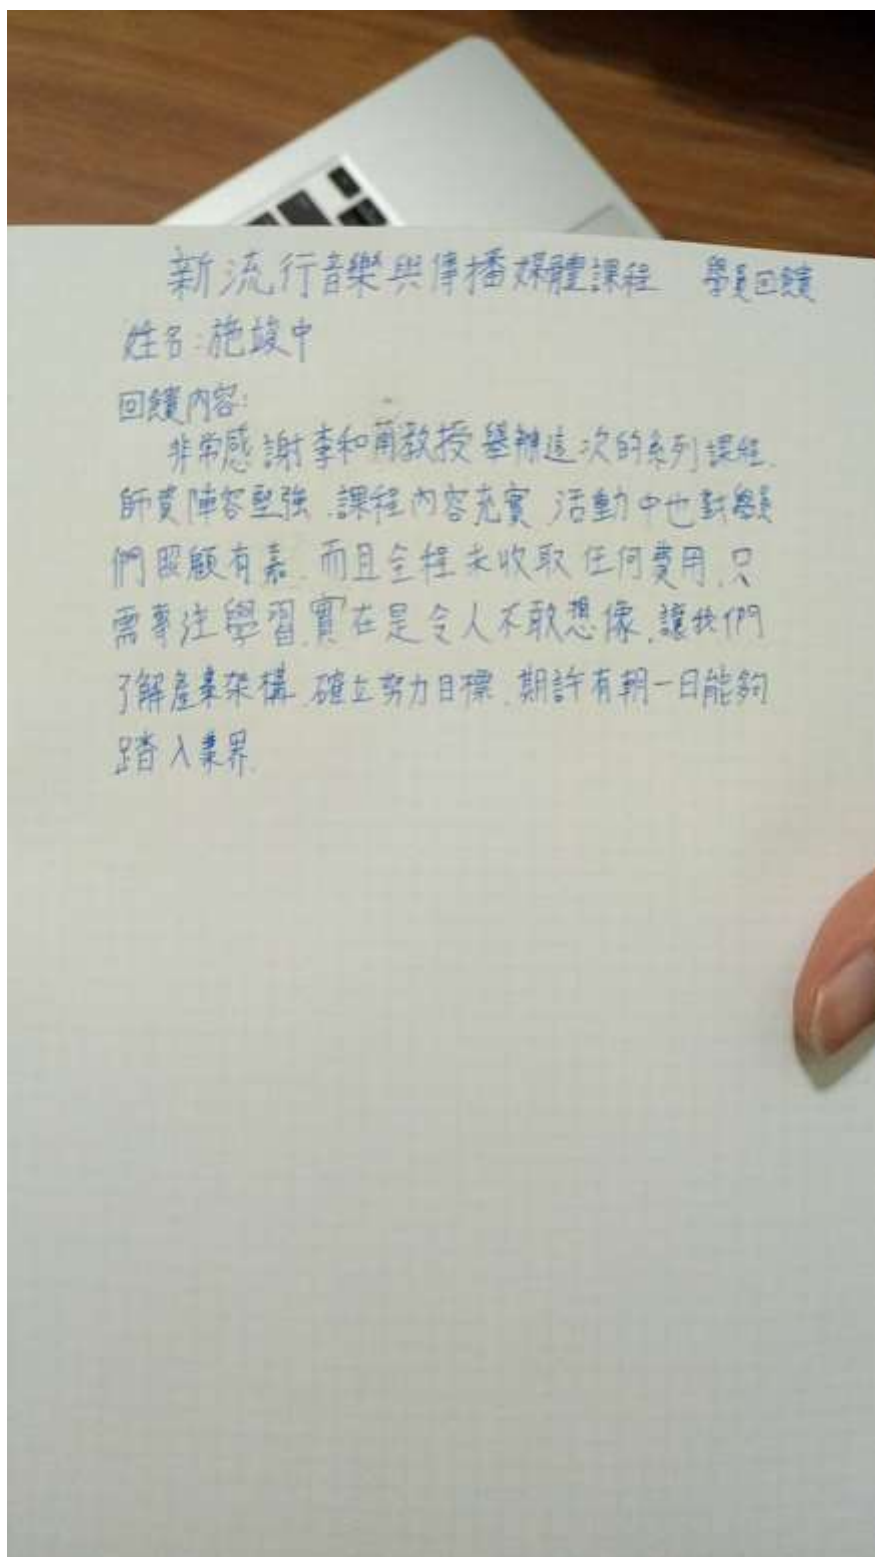 新流行音樂與傳播媒體課程 學員回饋
姓名:施竣中
回饋內容:
非常感謝李和莆教授舉辦這次的系列課程.
師資陣容堅強.課程內容充實.活動中也對學員
們照顧有嘉.而且全程未收取任何費用.只
需專注學習.實在是令人不敢想像.讓我們
了解產業架構.確立努力目標.期許有朝一日能夠
踏入業界.